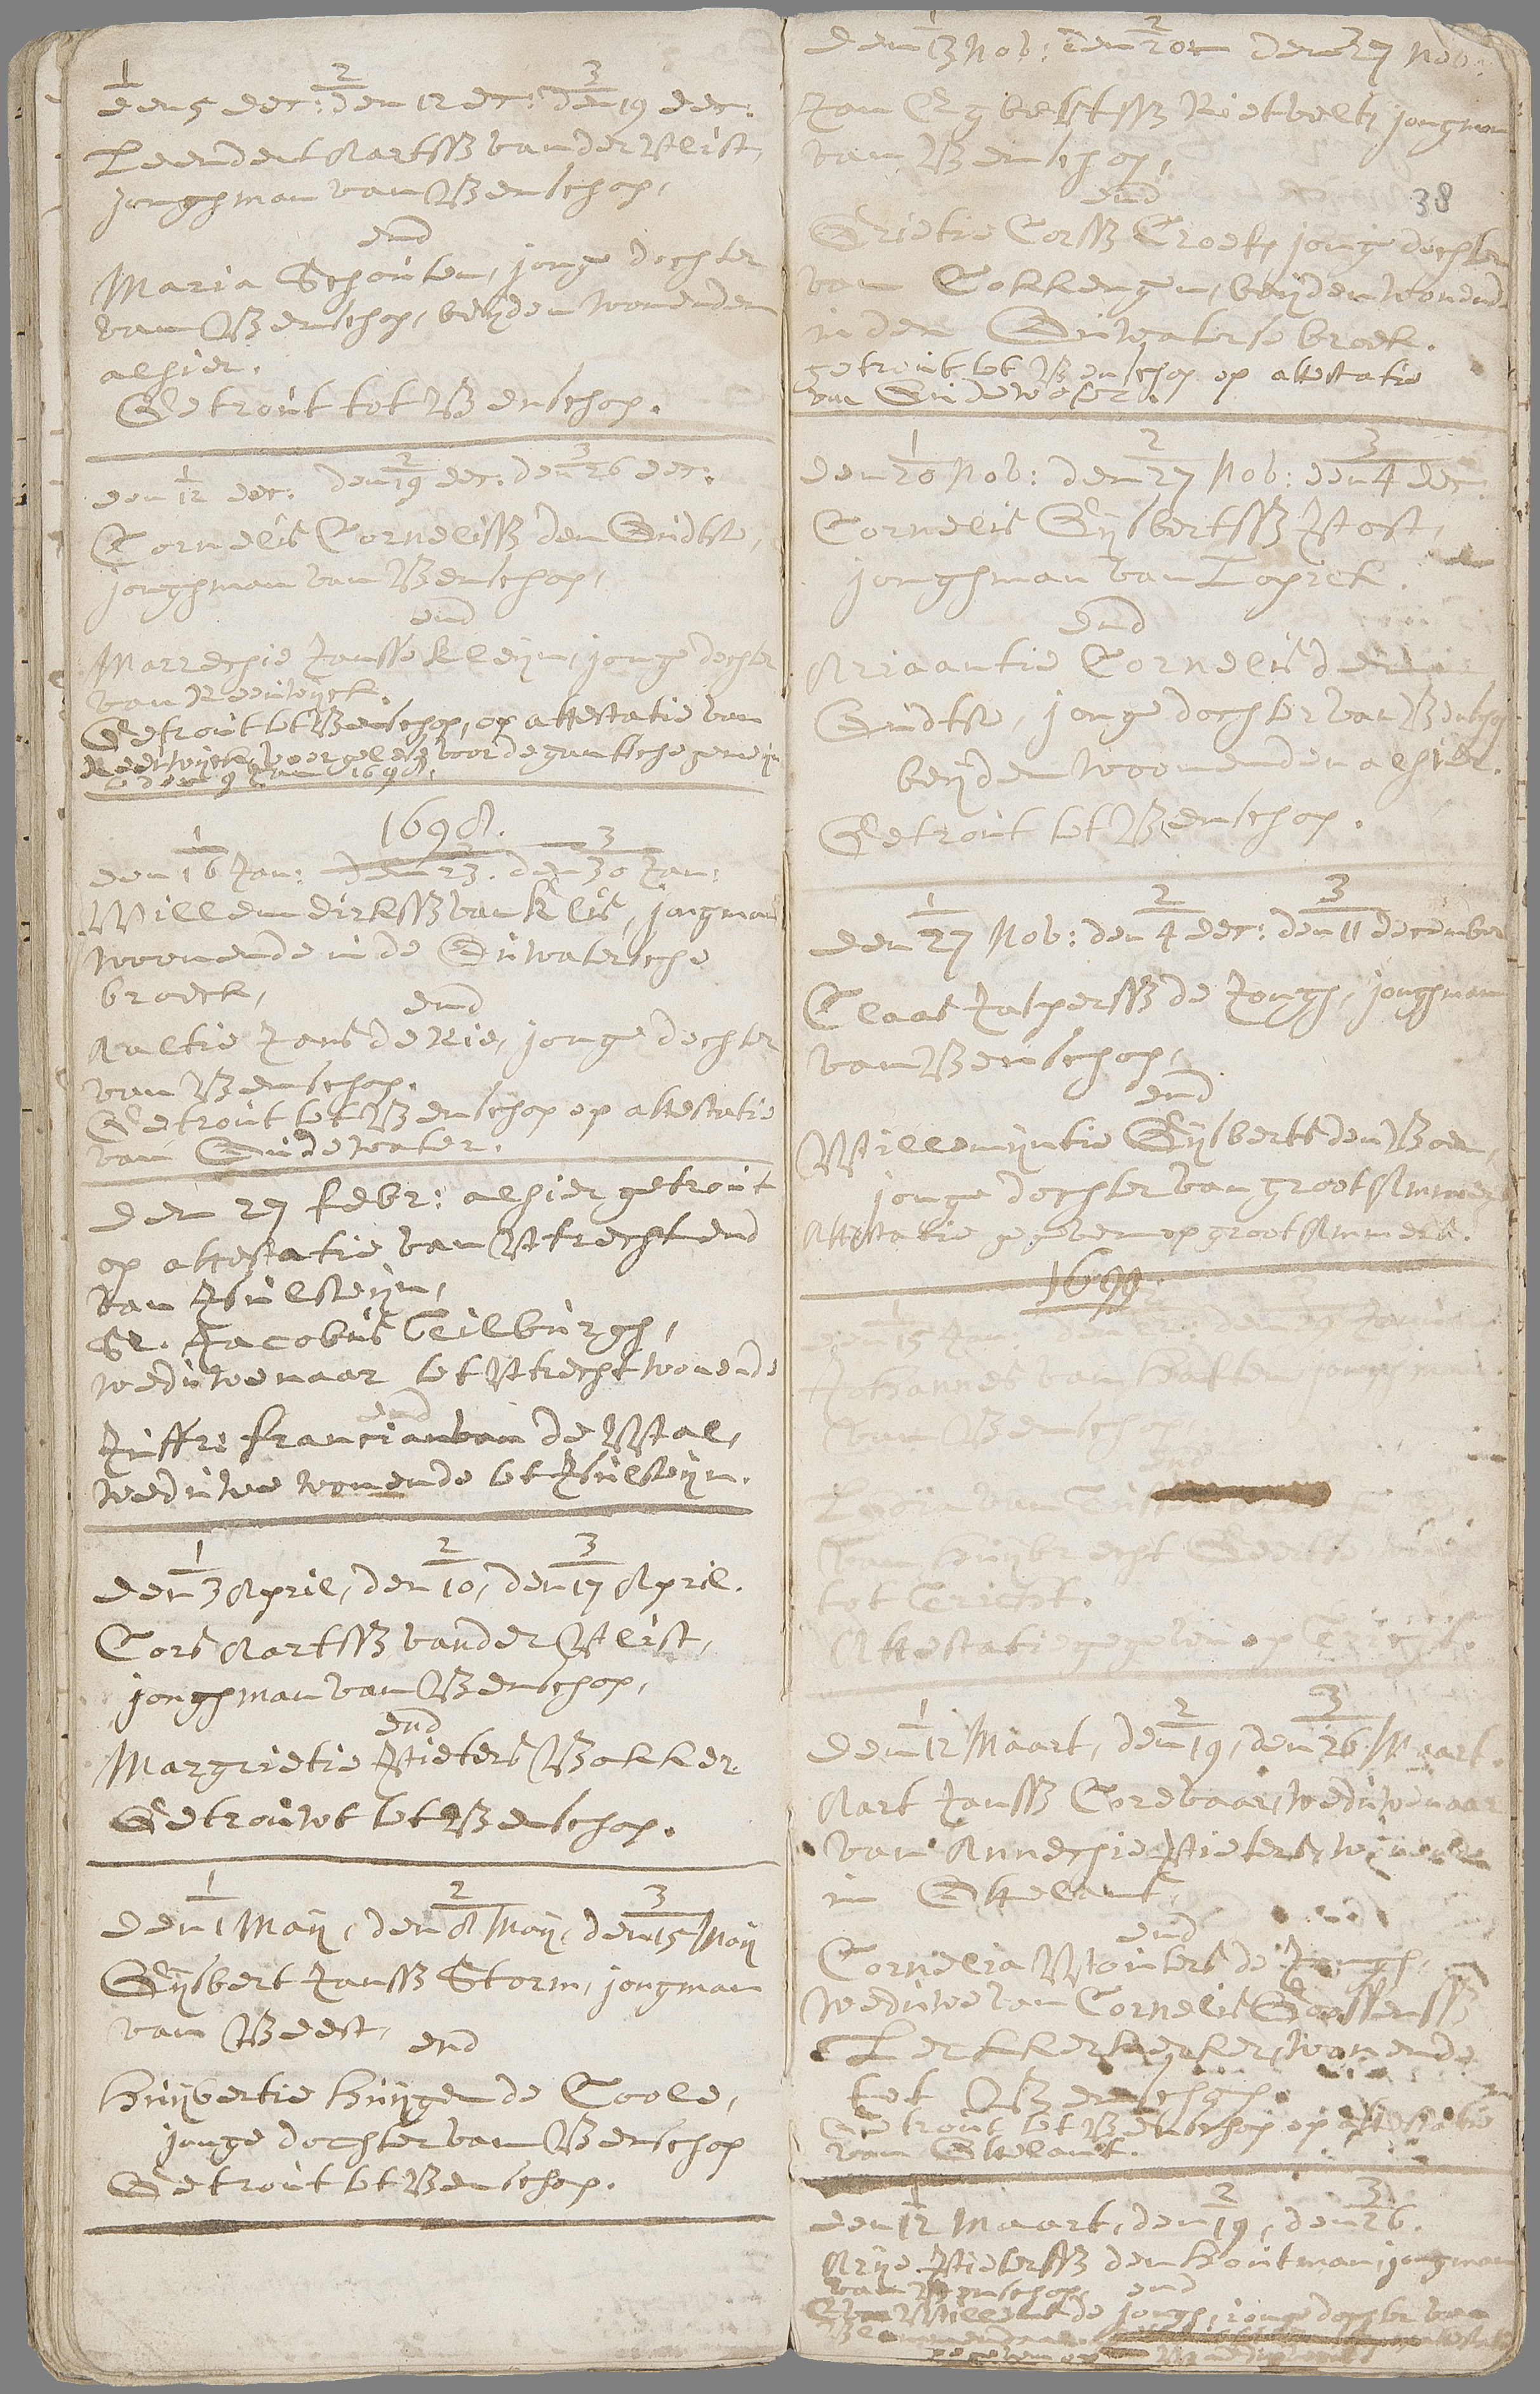 1 2 3
den 5 dec: den 12 dec: den 19 dec:
Leendert Aartssz vander Vlist,
jonghman van Benschop,
end
Maria Schouten, jonge dochter
van Benschop, beyden woonende
alhier.
Getrout tot Benschop.
1 2 3
den 12 dec. den 19 dec: den 26 dec:
Cornelis Cornelissz den Oudste,
jonghman van Benschop,
end
Marrechie Jansse Kleyn, jonge dochter
van Reewijck.
Getrout tot Benschop, op attestatie van
Reewijck, voorgelesen voor de gantsche gemeijn
den 9 Jan 1698.
1698.
1 2 3
den 16 Jan: den 23. den 30 Jan:
Willem dirkssz van Klis, jongman
woonende in de Suwatersche
broeck,
end
Aaltie Jans de Rie, jonge dochter
van Benschop.
Getrout tot Benschop op attestatie
van Oudewater.
Den 27 febr: alhier getrout
op attestatie van Utrecht end
van Isulsteijn,
Sr. Jacobus Tilburgh,
weduwenaar tot Utrecht wonende
end
Juffr: francia de Wal,
weduwe wonende tot Isulsteijn.
1 2 3
den 3 April, den 10, den 17 April.
Cors Aartssz vander Vlist,
jonghman van Benschop,
end
Margrietie Pieters Bakker.
Getrouwt tot Benschop.
1 2 3
den 1 Maij, den 8 Maij, den 15 Maij
Gijsbert Janssz Storm, jongman
van Beest,
end
Huijbertie Huijgen de Coole,
jonge dochter van Benschop
Getrout tot Benschop.
1 2 3
den 13 Nob: den 20 den 27 Nob:
Jan Egbertssz Rietvelt, jongman
van Benschop,
end
38
Grietie Corssz Croek, jonge dochter
van Cokkengen, beyden woonende
in den Suwaterse broek.
getrout tot Benschop op attestatie
van Oudewater.
1 2 3
den 20 Nob: den 27 Nob: den 4 dec:
Cornelis Gijsbertssz Post,
jonghman van Lopick.
end
Ariaantie Cornelis den
Oudste, jonge dochter van Benschop
beyden woonende alhier.
Getrout tot Benschop.
1 2 3
den 27 Nob: den 4 dec: den 11 december
Claas Jasperssz de Jongh, jonghman
van Benschop,
end
Willemijntie Gijsberts den Boer,
jonge dochter van groot Ammers
Attestatie gegeven op groot Ammers.
1699.
Johannes van Hatten jonghman
van Benschop,
end
Attestatie gegeven op
1 2 3
den 12 Maart, den 19, den 26 Maart.
Aart Janssz Corevaar, weduwenaar
van Annechie Pieters, wonende
in Stkelant,
end
Cornelia Wouters de Jongh,
weduwe van Cornelis Goossenssz
Lekkerkerker, wonende
tot Benschop.
Getrout tot Benschop op attestatie
van
1 2 3
den 12 Maart, den 19, den 26.
Arije Pieterssz den Houtman, jongman
van Benschop, end
Willems de Jongh, jonge dochter van